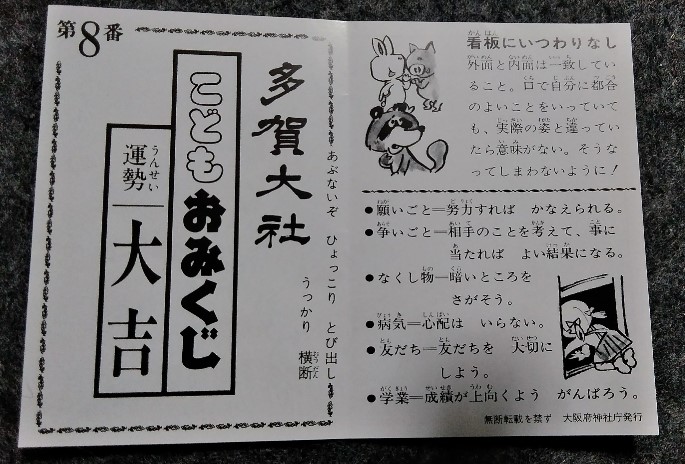 第8番
多賀大社
こどもおみくじ
運勢 大吉
うんせい
あぶないぞ ひょっこり とび出し
うっかり 横断
おうだん
看板にいつわりなし
外面と内面は一致してい
ること。口で自分に都合
のよいことをいっていて
も、実際の姿と違ってい
たら意味がない。そうな
ってしまわないように!
●願いごと＝努力すれば かなえられる。
●争いごと＝相手のことを考えて、事に
当たれば よい結果になる。
●なくし物＝暗いところを
さがそう。
●病気＝心配は いらない。
●友だち＝友だちを 大切に
しよう。
●学業＝成績が上向くよう がんばろう。
無断転載を禁ず 大阪府神社庁発行